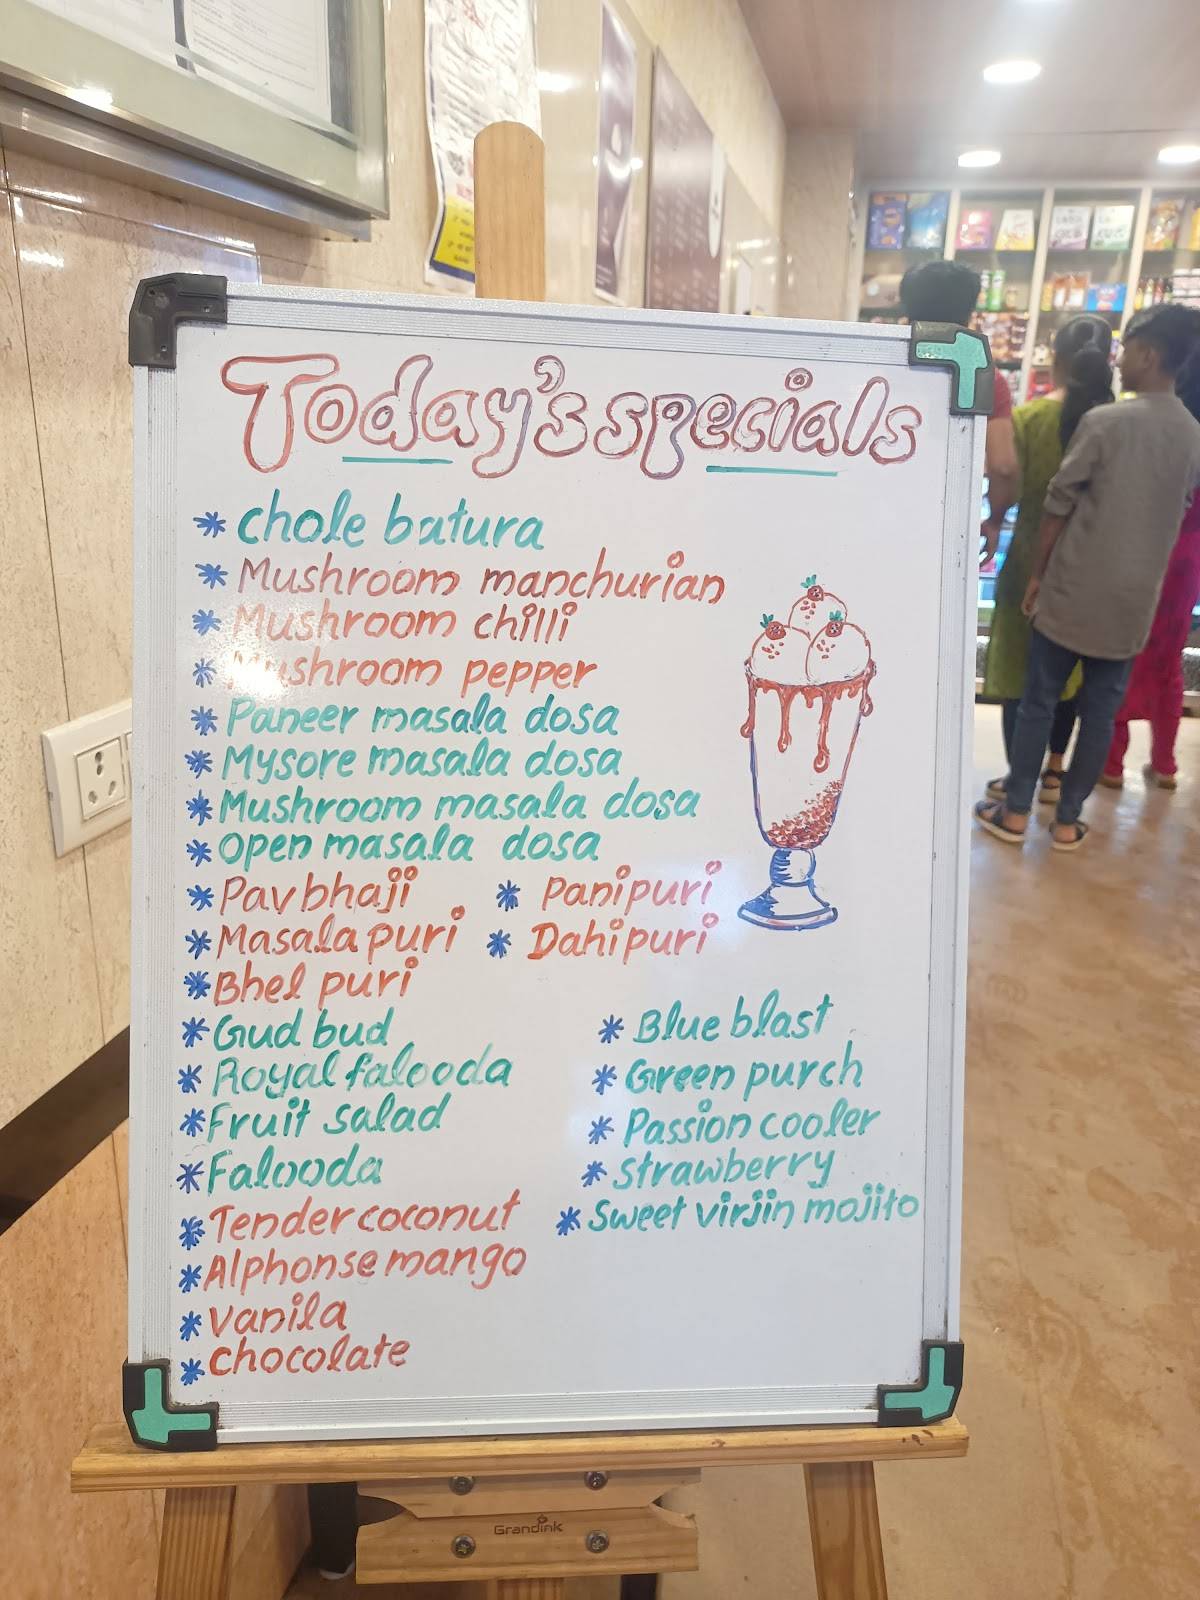 Today's specials
* chole batura
* Mushroom manchurian
* Mushroom chilli
* Mushroom pepper
* Paneer masala dosa
* Mysore masala dosa
* Mushroom masala dosa
* open masala dosa
* Pav bhaji * Panipuri
* Masala puri * Dahi puri
* Bhel puri
* Gud bud * Blue blast
* Royal falooda * Green purch
* Fruit salad * Passion cooler
* Falooda * Strawberry
* Tender coconut * Sweet virjin mojito
* Alphonse mango
* Vanila
* chocolate
Grandink